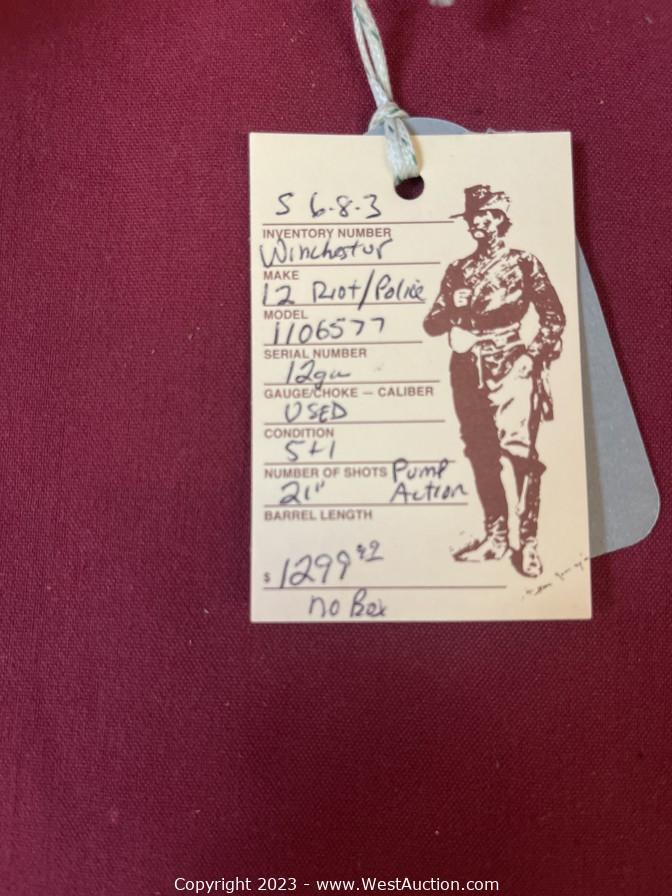 S 6-8-3
INVENTORY NUMBER
Winchester
MAKE
12 Riot/Police
MODEL
1106577
SERIAL NUMBER
12ga
GAUGE/CHOKE — CALIBER
USED
CONDITION
5+1
NUMBER OF SHOTS Pump
21" Action
BARREL LENGTH
$ 1299.49
no Box
Copyright 2023 - www.WestAuction.com